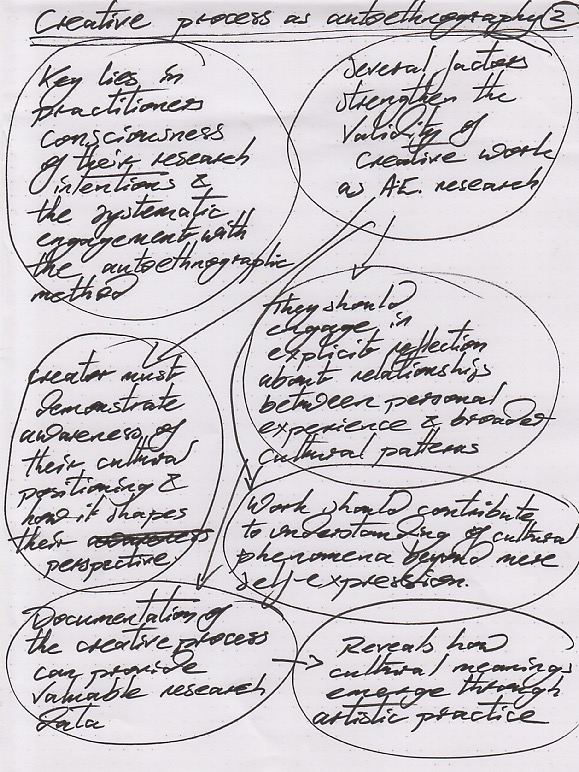 Creative process as autoethnography 2
Key lies in
practitioners
consciousness
of their research
intentions &
the systematic
engagement with
the autoethnographic
method
Several factors
strengthen the
validity of
creative work
as A.E. research
They should
engage in
explicit reflection
about relationships
between personal
experience & broader
cultural patterns
Creator must
demonstrate
awareness of
their cultural
positioning &
how it shapes
their
perspective.
Work should contribute
to understanding of cultural
phenomena beyond mere
self-expression.
Documentation of
the creative process
can provide
valuable research
data
Reveals how
cultural meanings
emerge through
artistic practice